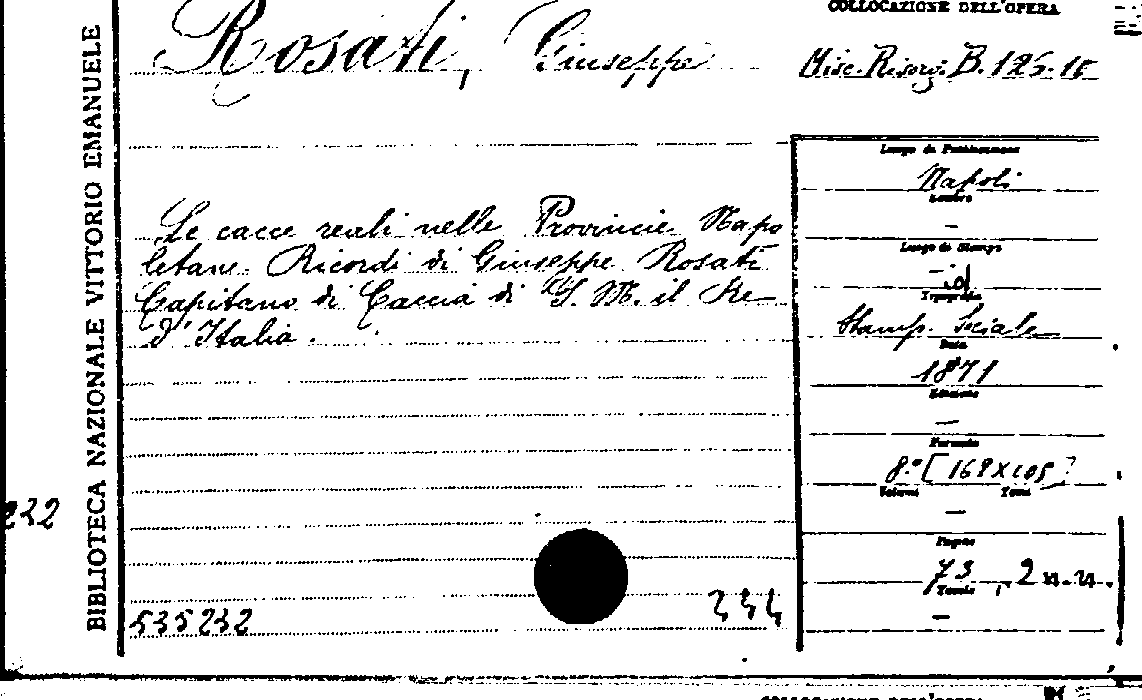 COLLOCAZIONE DELL'OPERA
Rosati, Giuseppe
Misc. Risorg. B. 126.10
BIBLIOTECA NAZIONALE VITTORIO EMANUELE
Luogo di Pubblicazione
Napoli
Le cacce reali nelle Provincie Napo
letane. Ricordi di Giuseppe Rosati
Capitano di Caccia di S. M. il Re
d'Italia.
—
Luogo di Stampa
—
Tipografia
Stamp. Sociale
Data
1871
Edizione
—
Formato
8.° [168×105]
Volumi Tomi
—
Pagine
73, 2 n.n.
Tavole
—
232
535232